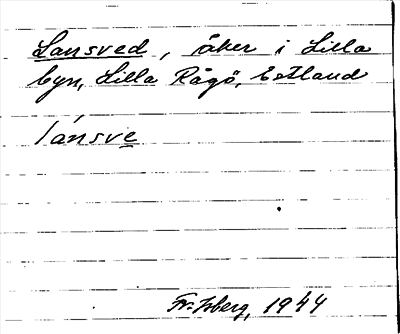 Lansved, åker i Lilla
byn, Lilla Rågö, Estland
lánsve
Fr. Isberg, 1944